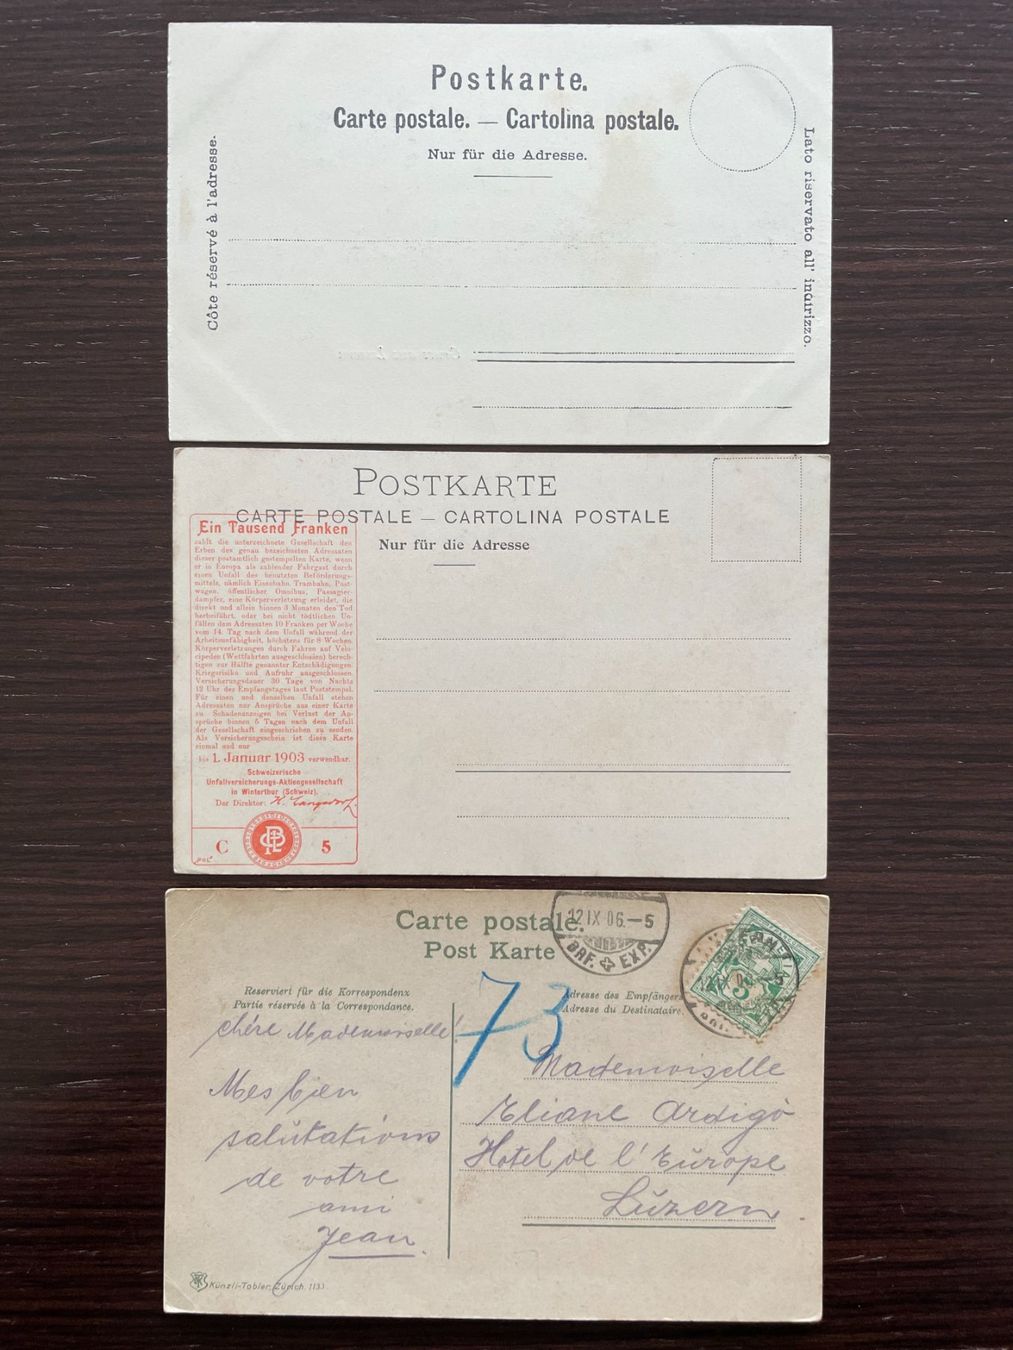 Postkarte.
Carte postale. — Cartolina postale.
Nur für die Adresse.
Côte réservé à l'adresse.
Lato riservato all' indirizzo.
POSTKARTE
CARTE POSTALE — CARTOLINA POSTALE
Nur für die Adresse
Ein Tausend Franken
zahlt die unterzeichnete Gesellschaft den
Erben des genau bezeichneten Adressaten
dieser postamtlich gestempelten Karte, wenn
er in Europa als zahlender Fahrgast durch
einen Unfall des benutzten Beförderungs-
mittels, nämlich Eisenbahn, Trambahn, Post-
wagen, öffentlicher Omnibus, Passagier-
dampfer, eine Körperverletzung erleidet, die
direkt und allein binnen 3 Monaten den Tod
herbeiführt, oder bei nicht tödtlichen Un-
fällen dem Adressaten 10 Franken per Woche
vom 14. Tag nach dem Unfall während der
Arbeitsunfähigkeit, höchstens für 8 Wochen.
Körperverletzungen durch Fahren auf Velo-
cipeden (Wettfahrten ausgeschlossen) berech-
tigen zur Hälfte genannter Entschädigungen.
Kriegsrisiko und Aufruhr ausgeschlossen.
Versicherungsdauer 30 Tage von Nachts
12 Uhr des Empfangstages laut Poststempel.
Für einen und denselben Unfall stehen
Adressaten nur Ansprüche aus einer Karte
zu. Schadenanzeigen bei Verlust der An-
sprüche binnen 5 Tagen nach dem Unfall
der Gesellschaft eingeschrieben zu senden.
Als Versicherungsschein ist diese Karte
einmal und nur
bis 1. Januar 1903 verwendbar.
Schweizerische
Unfallversicherungs-Aktiengesellschaft
in Winterthur (Schweiz).
Der Direktor:
C 5
Carte postale.
Post Karte
12 IX 06.–5
BRF. EXP.
Reserviert für die Korrespondenz
Partie réservée à la Correspondance.
Adresse des Empfängers
Adresse du Destinataire.
73
5
chère Mademoiselle!
Mes bien
salutations
de votre
ami
Jean.
Mademoiselle
Eliane Ardigò
Hotel de l'Europe
Luzern.
Künzli-Tobler, Zürich. 1131